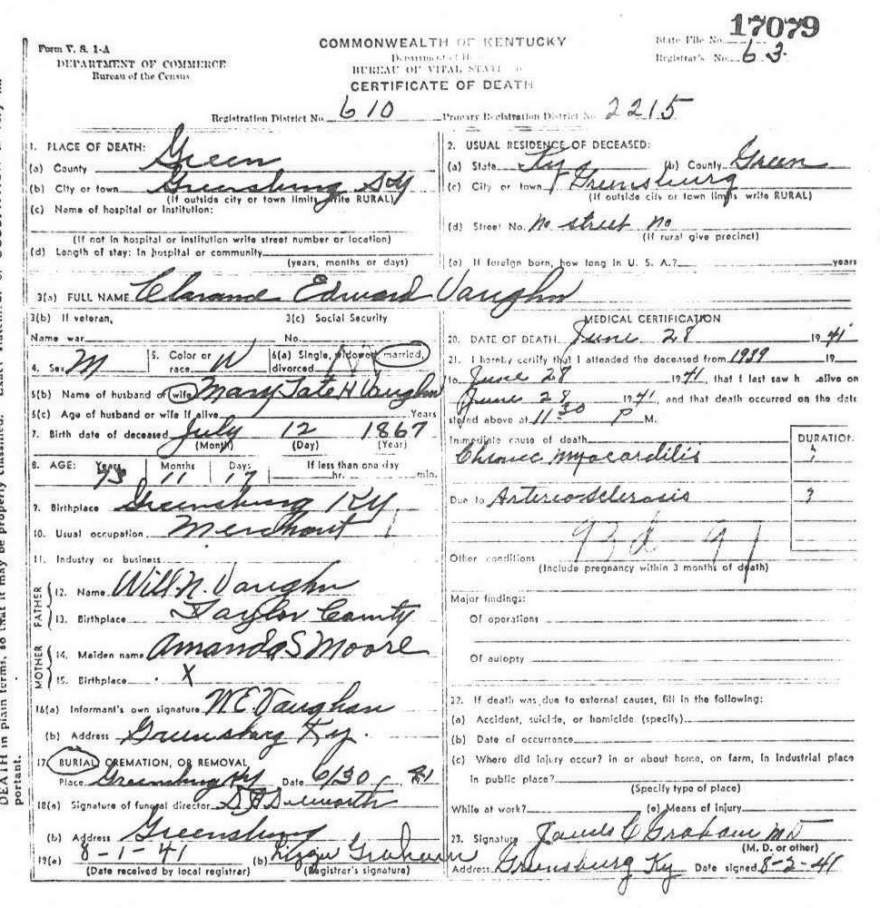 17079
Form V. S. 1-A
DEPARTMENT OF COMMERCE
Bureau of the Census
COMMONWEALTH OF KENTUCKY
BUREAU OF VITAL
CERTIFICATE OF DEATH
State File No.
Registrar's No. 63
Registration District No. 610 Primary Registration District No. 2215
1. PLACE OF DEATH:
(a) County Green
(b) City or town Greensburg Ky
(If outside city or town limits write RURAL)
(c) Name of hospital or Institution:
(If not in hospital or institution write street number or location)
(d) Length of stay: In hospital or community
(years, months or days)
2. USUAL RESIDENCE OF DECEASED:
(a) State Ky (b) County Green
(c) City or town Greensburg
(If outside city or town limits write RURAL)
(d) Street No. No street no
(If rural give precinct)
(e) If foreign born, how long in U. S. A.? years
3(a) FULL NAME Clarance Edward Vaughn
3(b) If veteran,
Name war
3(c) Social Security
No.
4. Sex M
5. Color or race W
6(a) Single, widowed, married, divorced
6(b) Name of husband or wife Mary Tate H Vaughn
6(c) Age of husband or wife if alive Years
7. Birth date of deceased July 12 1867
(Month) (Day) (Year)
8. AGE: Years 73 Months 11 Days 17 If less than one day hr. min.
9. Birthplace Greensburg Ky
10. Usual occupation Merchant
11. Industry or business
FATHER
12. Name Will N. Vaughn
13. Birthplace Taylor County
MOTHER
14. Maiden name Amanda S Moore
15. Birthplace X
16(a) Informant's own signature W.E. Vaughan
(b) Address Greensburg Ky.
17. BURIAL, CREMATION, OR REMOVAL
Place Greensburg Ky Date 6/30, 41
18(a) Signature of funeral director
(b) Address Greensburg
19(a) 8-1-41 (b) Lizzie Graham
(Date received by local registrar) (Registrar's signature)
MEDICAL CERTIFICATION
20. DATE OF DEATH June 28 1941
21. I hereby certify that I attended the deceased from 1939 19
to June 28 1941, that I last saw h alive on
June 28 1941, and that death occurred on the date
stated above at 11:30 P M.
Immediate cause of death DURATION
Chronic myocarditis ?
Due to Arteriosclerosis ?
Other conditions
(Include pregnancy within 3 months of death)
Major findings:
Of operations
Of autopsy
22. If death was due to external causes, fill in the following:
(a) Accident, suicide, or homicide (specify)
(b) Date of occurrence
(c) Where did injury occur? in or about home, on farm, in industrial place
in public place?
(Specify type of place)
While at work? (e) Means of injury
23. Signature James C Graham MD
(M. D. or other)
Address Greensburg Ky Date signed 8-2-41
DEATH in plain terms, so that it may be properly classified.
portant.